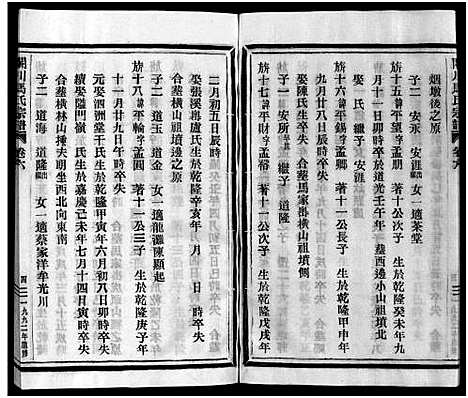 烟墩後之原
子二 安永 安淮繼出 女一適茶堂
旂十一 諱平 字孟 著十公次子 生於乾隆癸未年九
月十一日卯時卒於道光壬午年 葬西邊小山祖墳北
娶 氏 子一 安淮繼子
旂十六 諱平錫 字孟鄉 著十一公長子 生於乾隆甲申年
八月廿九日辰時卒失
娶陳氏生卒失 合葬馬家嶴橫山祖墳側
子一 安所繼出 繼子一 道隆
旂十七 諱平財 字孟帮 著十一公次子 生於乾隆戊戌年
二月初五日辰時卒失
娶張溪冉盧氏生於乾隆辛亥年 月 日 時卒失
合葬橫山祖墳邊之原
子二 道玉 道金 女一適龍灘陳顯起
旂十八 諱平 字孟圓 著十一公三子 生於乾隆庚子年
十一月廿九日午時卒失
元娶泗洲堂王氏生於乾隆甲寅年六月初八日卯時卒失
繼娶隘門嶺 氏生於嘉慶己未年七月十四日寅時卒失
合葬橫林山捶夫明坐西北向東南
子二 道海 道隆繼出 女一適蔡家洋牟光川
開川馬氏宗譜 卷六
四 一九九二年重修